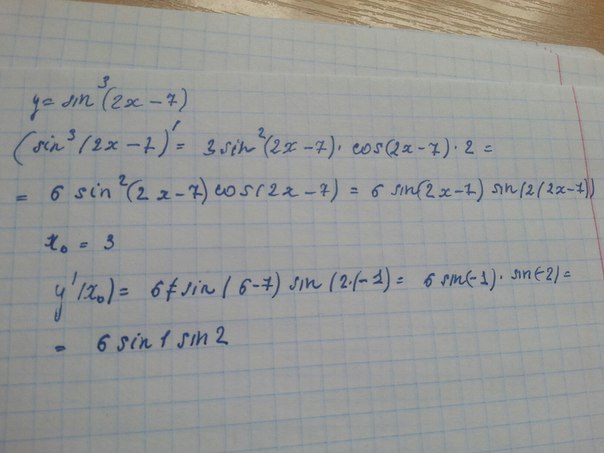 y = sin³(2x − 7)
(sin³(2x − 7)' = 3 sin²(2x − 7) · cos(2x − 7) · 2 =
= 6 sin²(2x − 7) cos(2x − 7) = 6 sin(2x − 7) sin(2(2x − 7))
x₀ = 3
y'(x₀) = 6 sin(6 − 7) sin(2·(−1) = 6 sin(−1) · sin(−2) =
= 6 sin 1 sin 2